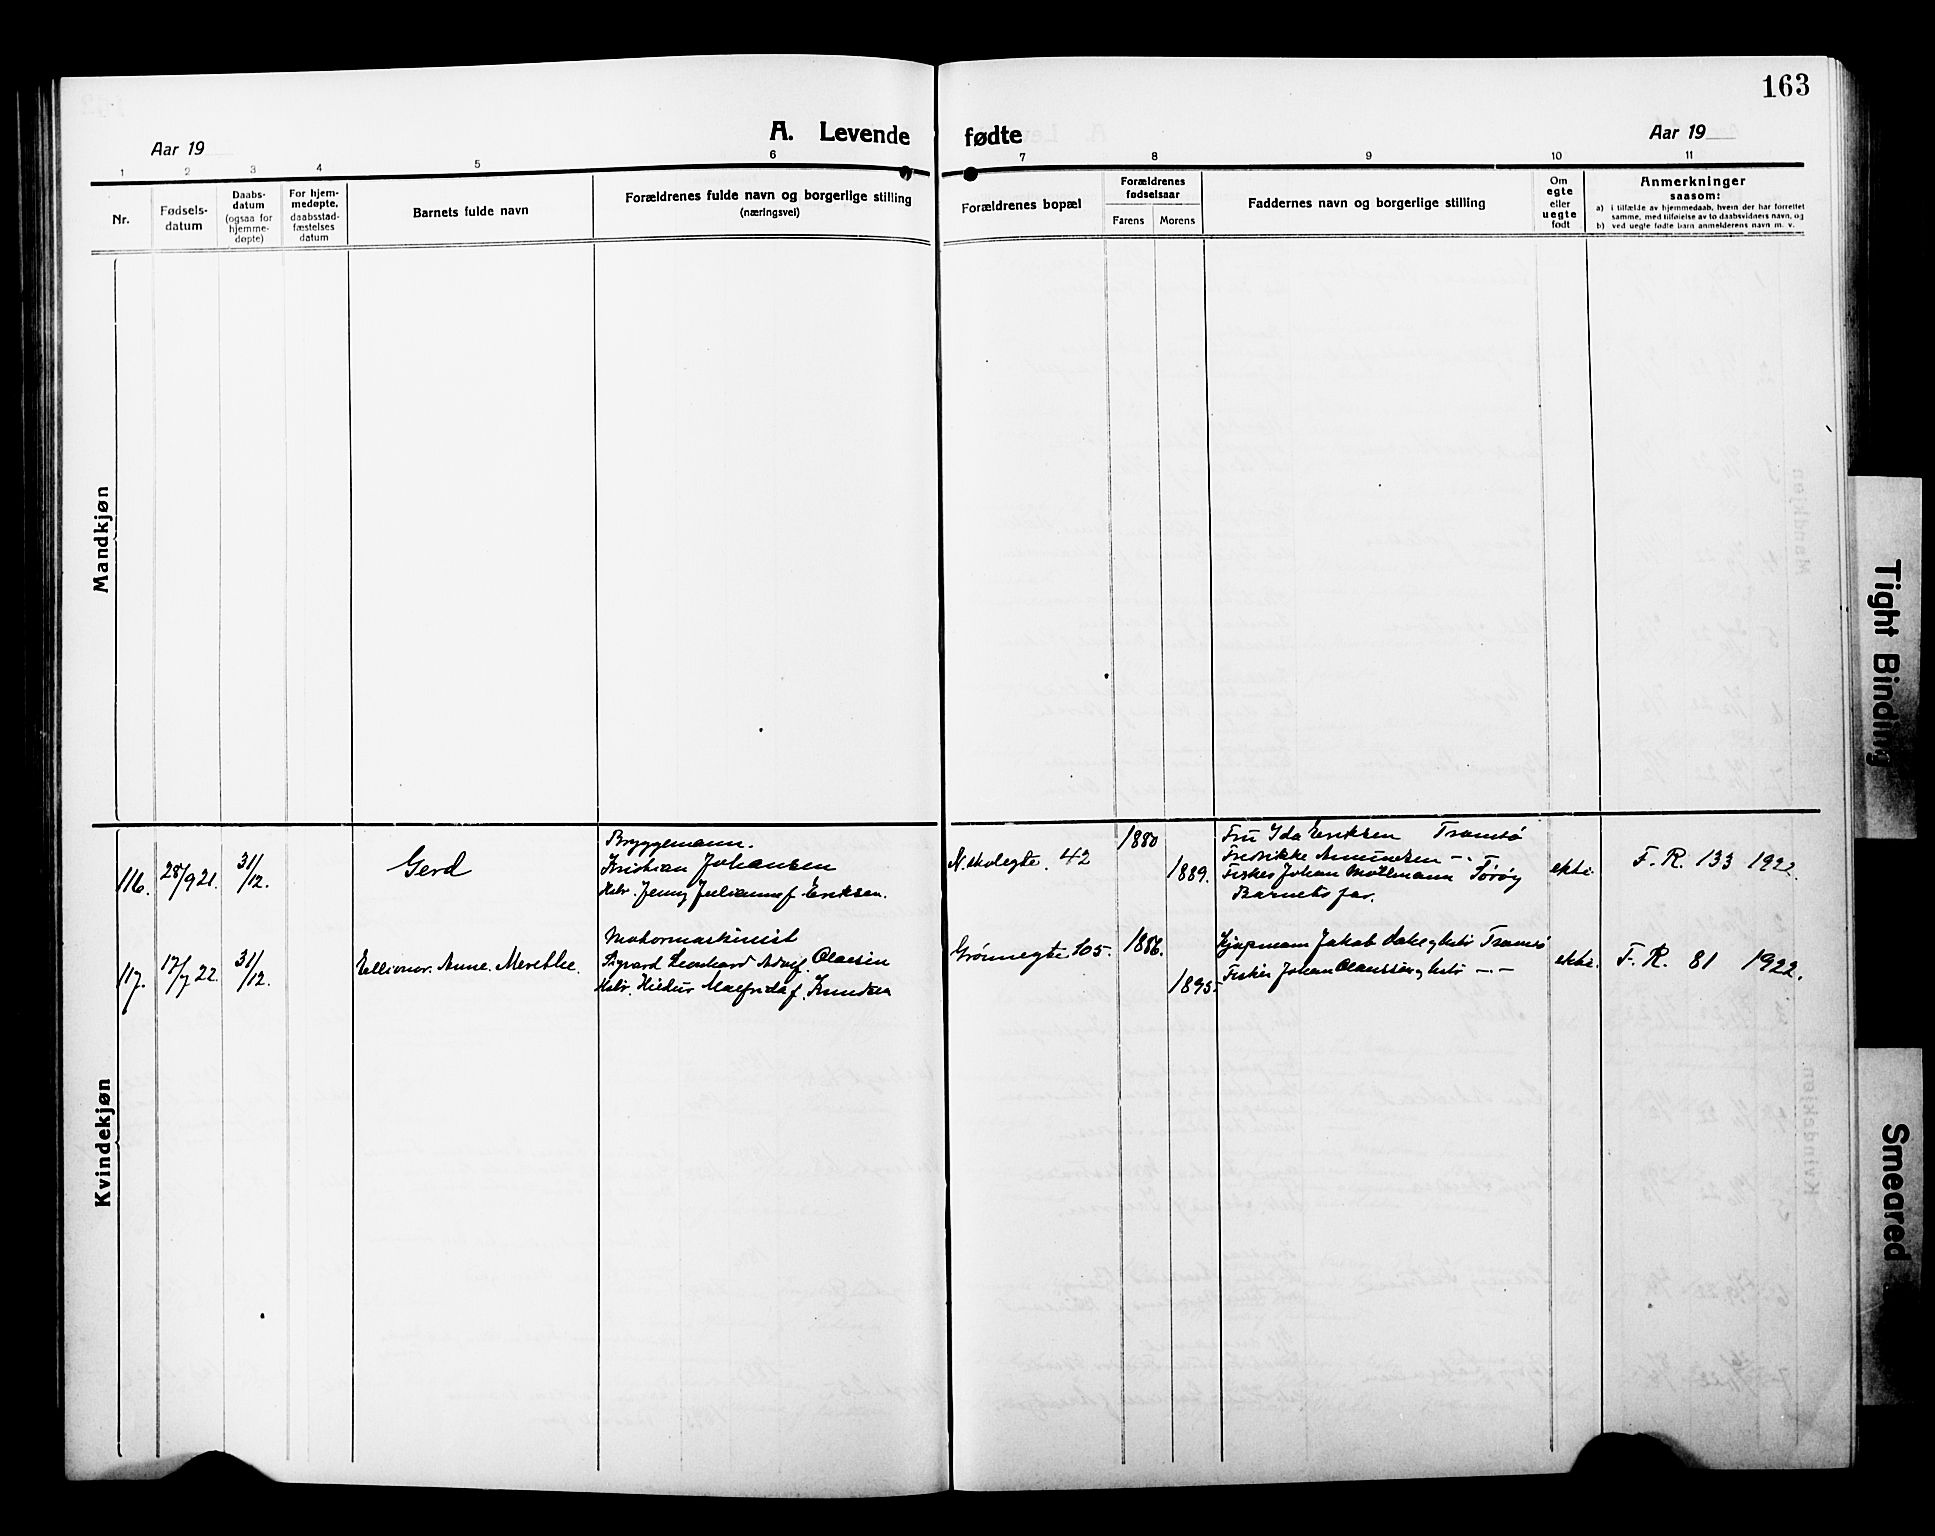 163
A. Levende fødte
Aar 19
Aar 19
1 2 3 4 5 6 7 8 9 10 11
Nr.
Fødsels-
datum
Daabs-
datum
(ogsaa for
hjemme-
døpte)
For hjem-
medøpte,
daabsstad-
fæstelses
datum
Barnets fulde navn
Forældrenes fulde navn og borgerlige stilling
(næringsvei)
Forældrenes bopæl
Forældrenes
fødselsaar
Farens Morens
Faddernes navn og borgerlige stilling
Om
egte
eller
uegte
født
Anmerkninger
saasom:
a) i tilfælde av hjemmedaab, hvem der har forrettet
samme, med tilføielse av to daabsvidners navn, og
b) ved uegte fødte barn anmelderens navn m. v.
Mandkjøn
Kvindekjøn
116. 28/9 21. 31/12. Gerd
Bryggemann.
Kristian Johansen
Hstr. Jenny Julianne f. Eriksen.
N. skolegte. 42
1880
1889.
Fru Ida Eriksen Tromsø
Fredrikke Amundsen -"-
Fisker Johan Mollmann
Barnets far.
ekte
F. R. 133 1922.
117. 17/7 22. 31/12. Ellionor. Anne. Merethe.
Motormaskinist
Sigvard Leonhard Claesen
Hstr. Hildur Malfrida f. Knudsen
Grønnegte 105.
1886.
1895
Kjøpmann Jakob Tromsø
Fisker Johan Claussen og hstr -"-
ekte.
F. R. 81 1922.
Tight Binding
Smeared